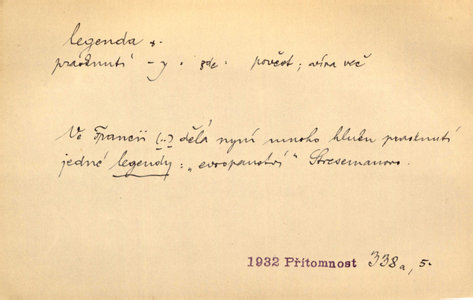 legenda
prasknutí -y. zde. pověst;
Ve Francii (..) dělá nyní mnoho hluku prasknutí
jedné legendy: „evropanství" Stresemanovo.
1932 Přítomnost 338a, 5.